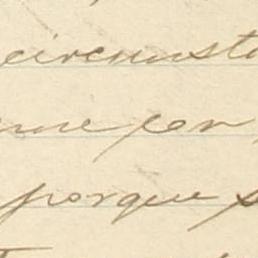 circunsta
me per
porque s